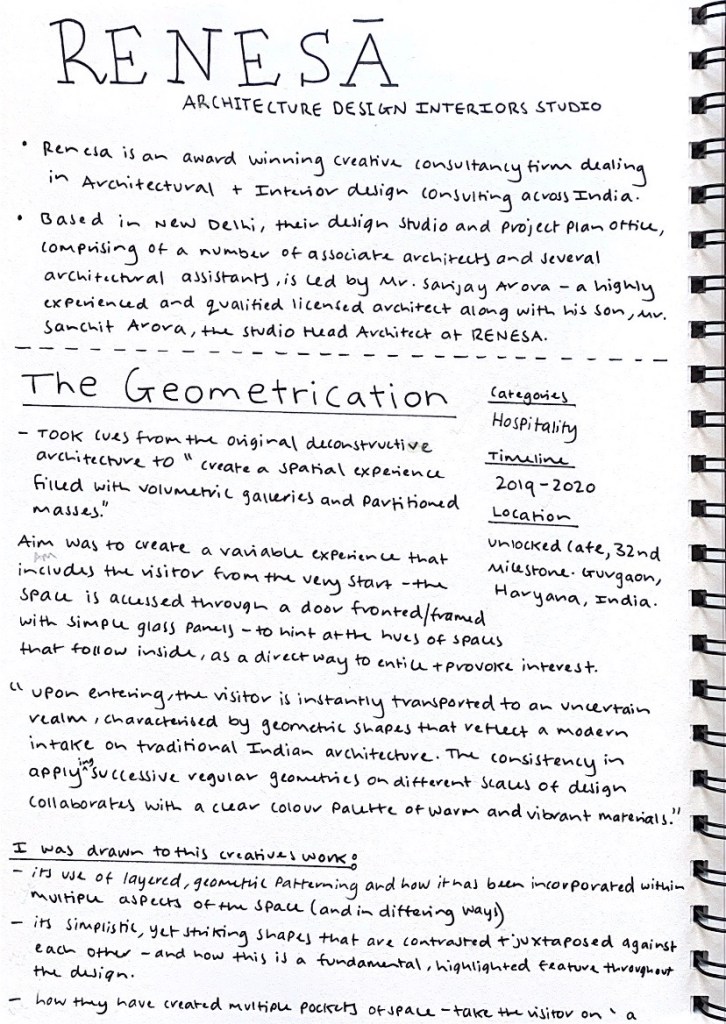 RENESĀ
ARCHITECTURE DESIGN INTERIORS STUDIO
• Renesa is an award winning creative consultancy firm dealing
in Architectural + Interior design consulting across India.
• Based in New Delhi, their design studio and project plan office,
comprising of a number of associate architects and several
architectural assistants, is led by Mr. Sanjay Arora - a highly
experienced and qualified licensed architect along with his son, Mr.
Sanchit Arora, the studio Head Architect at RENESA.
The Geometrication
- Took cues from the original deconstructive
architecture to "create a spatial experience
filled with volumetric galleries and partitioned
masses."
Categories
Hospitality
Timeline
2019-2020
Location
Unlocked Cafe, 32nd
Milestone. Gurgaon,
Haryana, India.
Aim was to create a variable experience that
includes the visitor from the very start - the
space is accessed through a door fronted/framed
with simple glass panels - to hint at the hues of spaces
that follow inside, as a direct way to entice + provoke interest.
"Upon entering, the visitor is instantly transported to an uncertain
realm, characterised by geometric shapes that reflect a modern
intake on traditional Indian architecture. The consistency in
applying successive regular geometries on different scales of design
collaborates with a clear colour palette of warm and vibrant materials."
I was drawn to this creatives work:
- its use of layered, geometric patterning and how it has been incorporated within
multiple aspects of the space (and in differing ways)
- its simplistic, yet striking shapes that are contrasted + juxtaposed against
each other - and how this is a fundamental, highlighted feature throughout
the design.
- how they have created multiple pockets of space - take the visitor on 'a